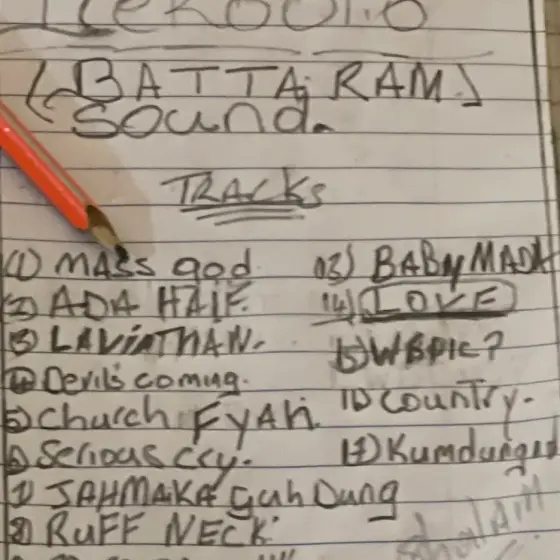 (BATTA RAM)
Sound.
TRACKS
(1) MASS god.
(2) ADA HAIF.
(3) LAViATHAN.
(4) Devils coming.
(5) Church FyAH.
(6) Serious cry.
(7) JAHMAKA guh Dung
(8) RuFF NECK
13) BABY MADA
14) LOVE
15)
16) Country.
17)